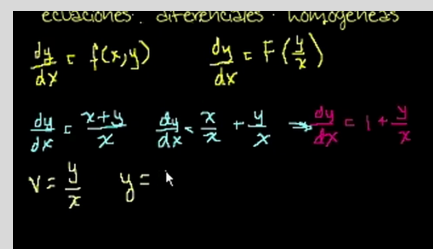 ecuaciones. diferenciales. homogeneas
dy/dx = f(x,y) dy/dx = F(y/x)
dy/dx = x+y/x dy/dx = x/x + y/x → dy/dx = 1 + y/x
v = y/x y =